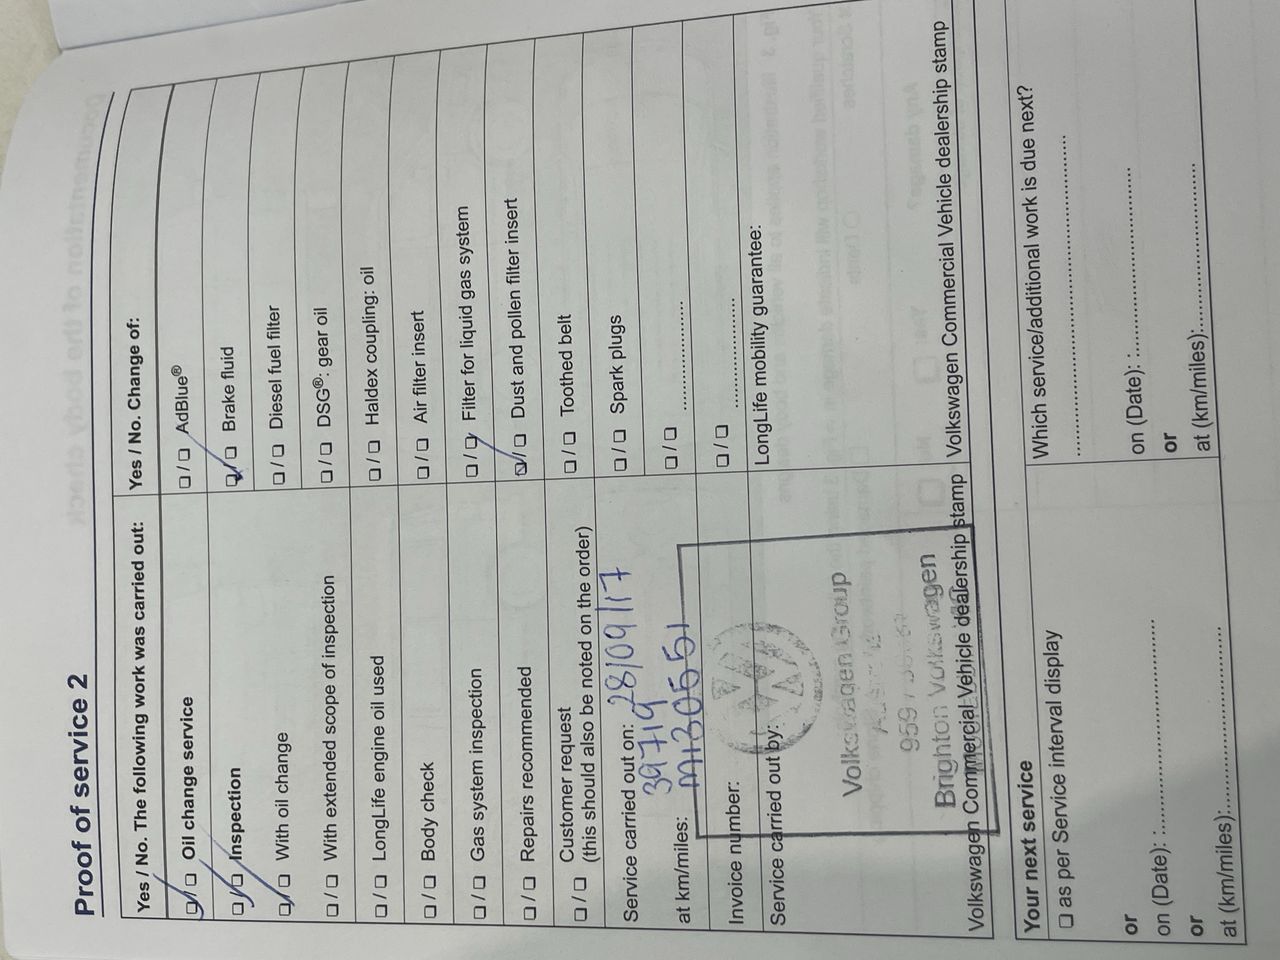 Proof of service 2
Yes / No. The following work was carried out:
☑/☐ Oil change service
☑/☐ Inspection
☑/☐ With oil change
☐/☐ With extended scope of inspection
☐/☐ LongLife engine oil used
☐/☐ Body check
☐/☐ Gas system inspection
☐/☐ Repairs recommended
☐/☐ Customer request
(this should also be noted on the order)
Service carried out on: 28/09/17
39719
at km/miles: M130551
Invoice number:
Service carried out by:
Volkswagen Group
Brighton Volkswagen
Volkswagen Commercial Vehicle dealership stamp
Yes / No. Change of:
☐/☐ AdBlue®
☑/☐ Brake fluid
☐/☐ Diesel fuel filter
☐/☐ DSG®: gear oil
☐/☐ Haldex coupling: oil
☐/☐ Air filter insert
☐/☐ Filter for liquid gas system
☑/☐ Dust and pollen filter insert
☐/☐ Toothed belt
☐/☐ Spark plugs
☐/☐ ....................
☐/☐ ....................
LongLife mobility guarantee:
Volkswagen Commercial Vehicle dealership stamp
Your next service
☐ as per Service interval display
or
on (Date): ....................
or
at (km/miles):....................
Which service/additional work is due next?
....................
on (Date): ....................
or
at (km/miles):....................